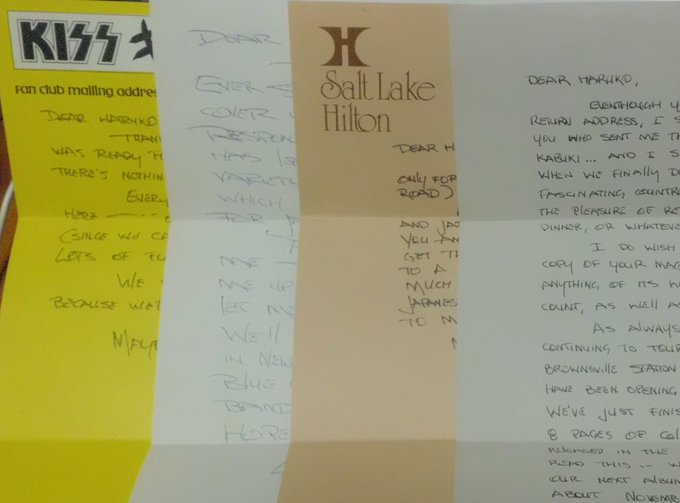 KISS
Fan club mailing addre
DEAR HARUKO
THAN
WAS READY
THERE'S NOTHIN
EVERY
HERE
(SINCE WE CA
LOTS OF FU
WE
BECAUSE WE'
MAYB
DEAR
EVER
COVER
RESPON
HAS
VARIETY
WHICH
FOR JA
ME
ME UP
LET ME
WE'LL
IN NEW
BLUE
BAND
HOPE
Salt Lake
Hilton
DEAR H
ONLY FOR
ROAD)
AND JAP
YOU AN
GET TH
TO A
MUCH
JAPANES
TO M
DEAR HARUKO,
EVENTHOUGH Y
RETURN ADDRESS, I S
YOU WHO SENT ME TH
KABUKI... AND I S
WHEN WE FINALLY DO
FASCINATING COUNTR
THE PLEASURE OF RE
DINNER, OR WHATEVE
I DO WISH
COPY OF YOUR MAG
ANYTHING OF ITS K
COUNT, AS WELL AS
AS ALWAYS
CONTINUING TO TOUR
BROWNSVILLE STATION
HAVE BEEN OPENING
WE'VE JUST FINIS
8 PAGES OF COL
RELEASED IN THE
READ THIS -- W
OUR NEXT ALBUM
ABOUT NOVEMB